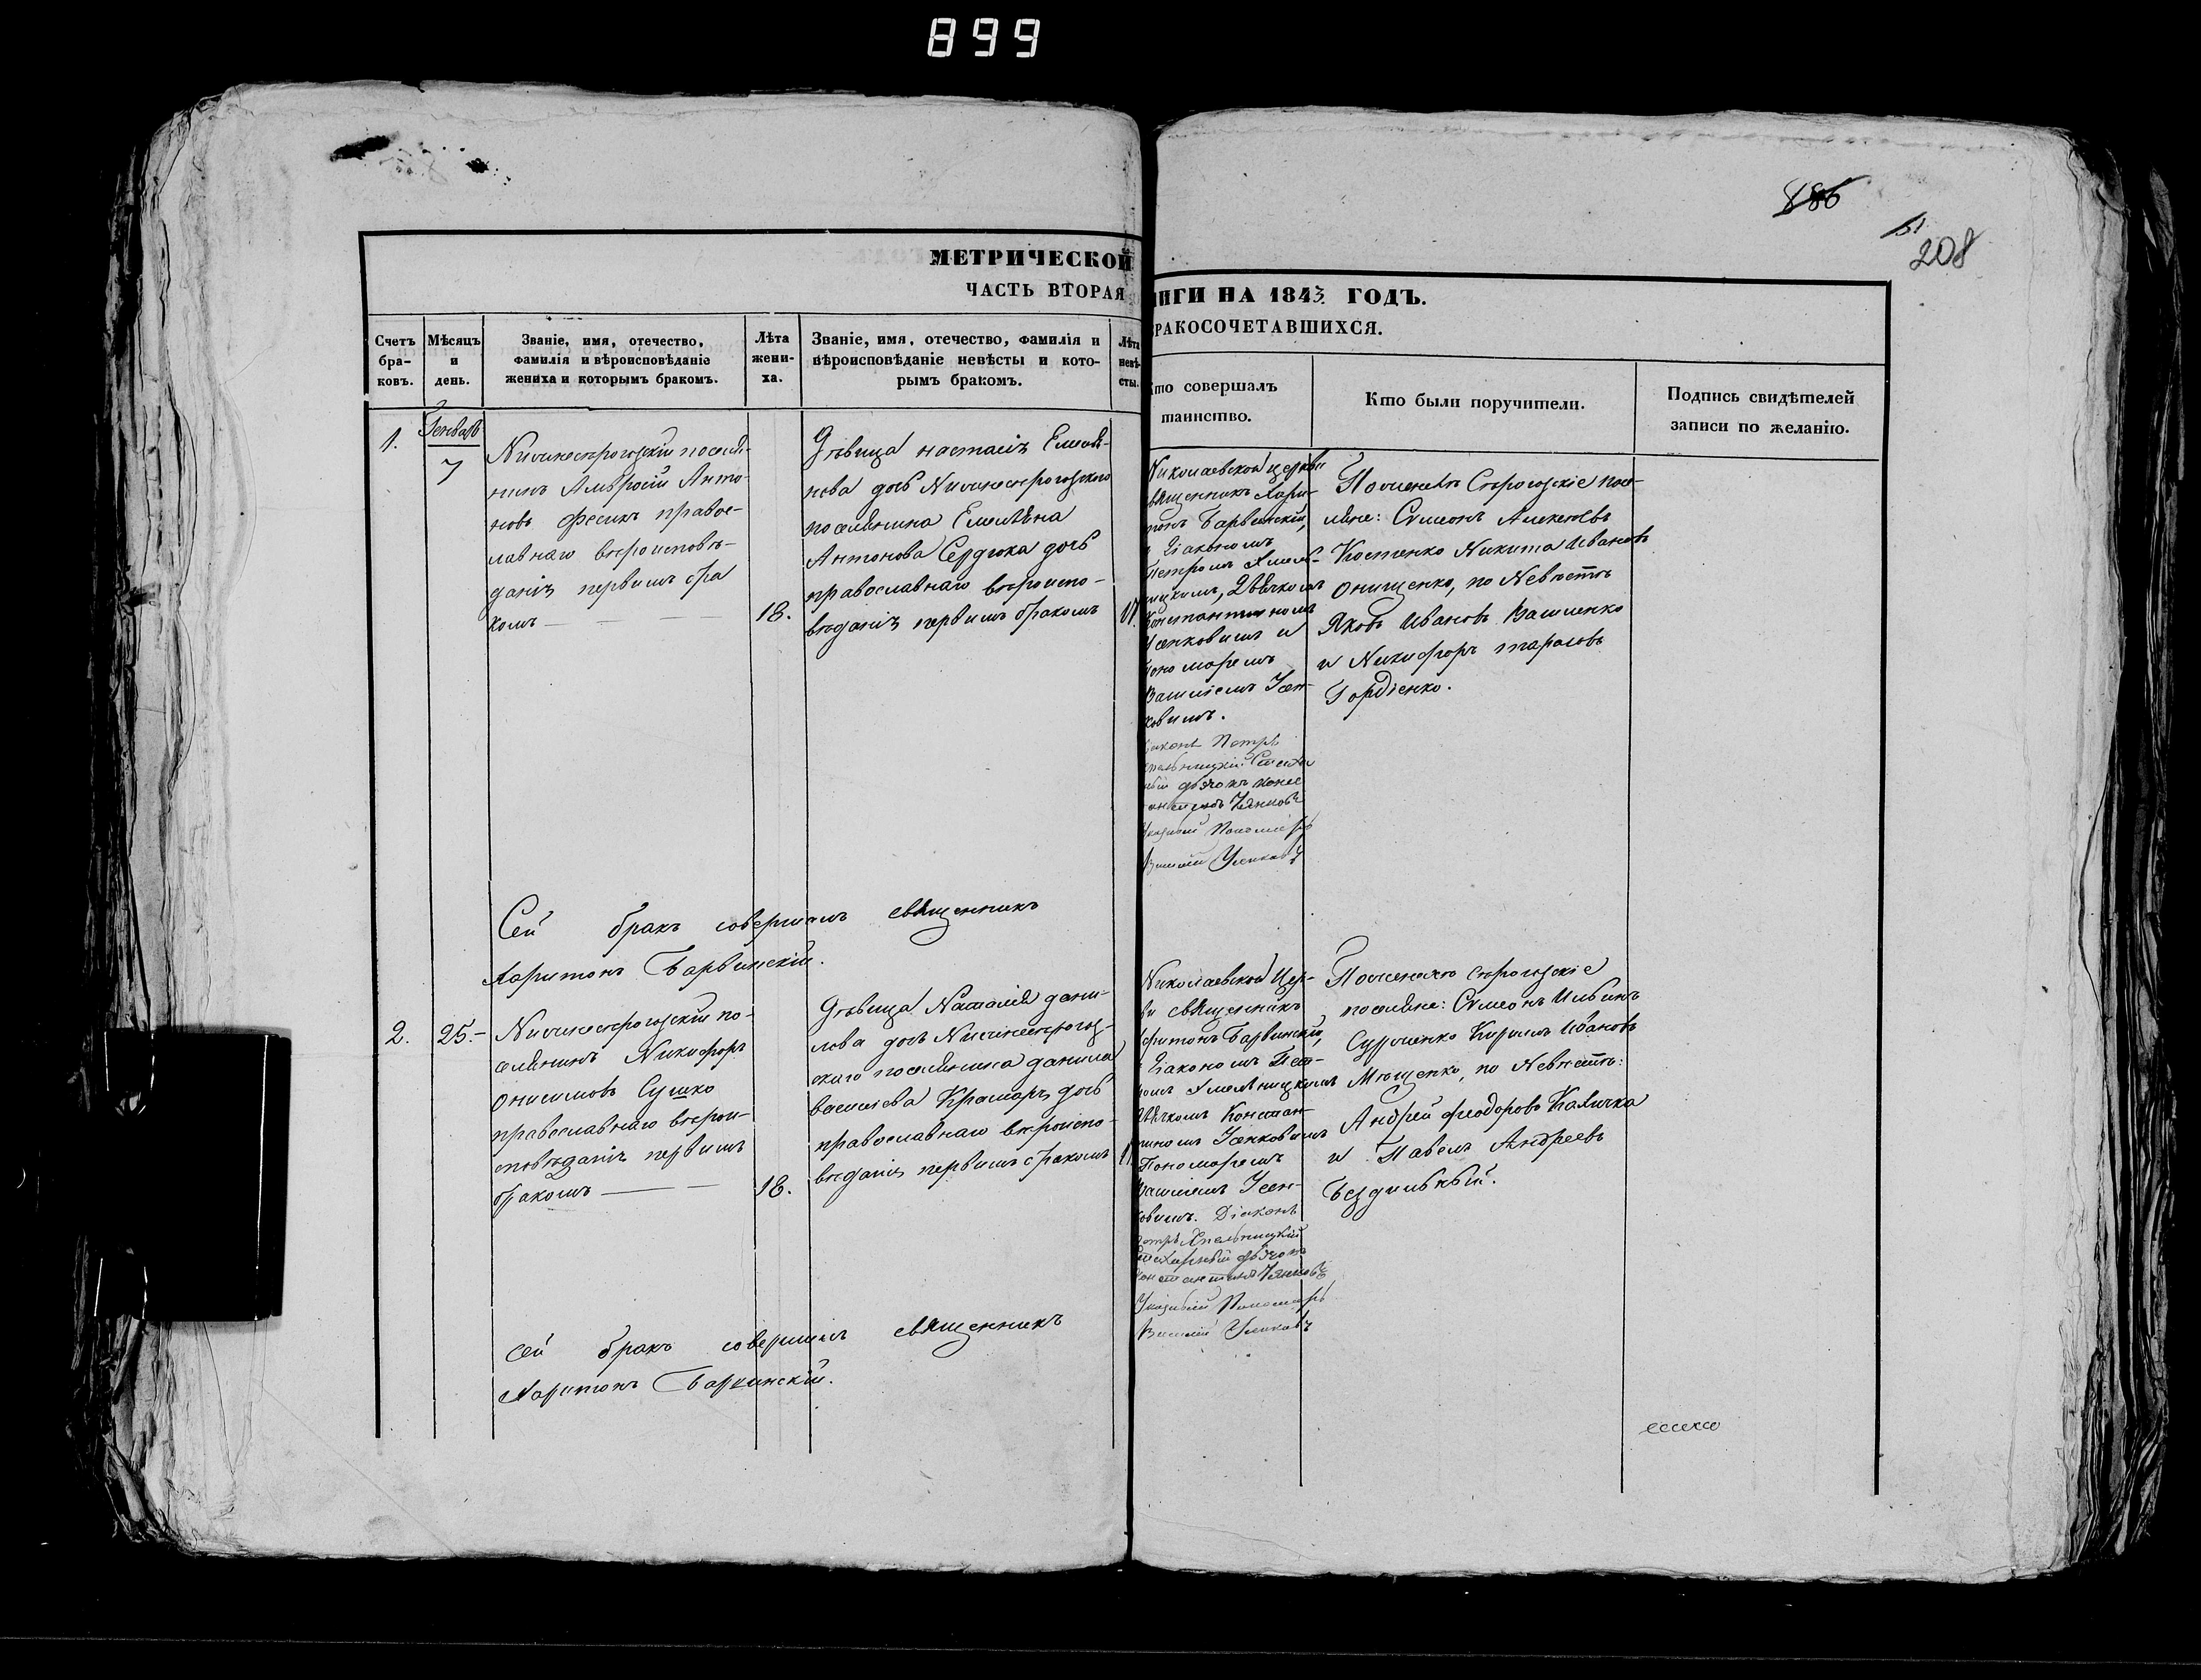 899
886
51
208
МЕТРИЧЕСКОЙ
ИГИ НА 1843 ГОДЪ.
ЧАСТЬ ВТОРАЯ
РАКОСОЧЕТАВШИХСЯ.
Счетъ
бра-
ковъ.
Мѣсяцъ
и
день.
Званіе, имя, отечество,
фамилія и вѣроисповѣданіе
жениха и которымъ бракомъ.
Лѣта
жени-
ха.
Званіе, имя, отечество, фамилія и
вѣроисповѣданіе невѣсты и кото-
рымъ бракомъ.
Лѣта
невѣ-
сты.
то совершалъ
таинство.
Кто были поручители.
Подпись свидѣтелей
записи по желанію.
1.
Генваря
7
Нижнестрогозскій поселя-
нинъ Амвросій Анто-
новъ Фесикъ правос-
лавнаго вѣроисповѣ-
данія первымъ бра
комъ
18.
Дѣвица настасія Емелья-
нова дочь Нижнестрогозского
поселянина Емельяна
Антонова Сердюка дочь
православнаго вѣроиспо-
вѣданія первымъ бракомъ
17.
Николаевской церкви
священникъ Хари-
тонъ Барвинскій,
Діакономъ
Петромъ Хмель-
ницкимъ, Дьячкомъ
Константиномъ
Усенковымъ и
Пономаремъ
Василіемъ Усен-
ковымъ.
Діаконъ Петръ
Хмельницкій
дьячокъ Конс
Указный Пономарь
Василій Усенковъ
По женихѣ Строгозскіе посе-
ляне: Симеонъ Алексѣевъ
Костенко Никита Ивановъ
Онищенко, по Невѣстѣ
Яковъ Ивановъ Василенко
и Никифоръ тарасовъ
Гордіенко.
Сей бракъ совершалъ священникъ
Харитонъ Барвинскій.
2.
25.-
Нижнестрогозскій по-
селянинъ Никифоръ
Онисимовъ Сушко
православнаго вѣрои-
сповѣданія первымъ
бракомъ
18.
Дѣвица Наталія дани-
лова дочь Нижнестрогоз-
ского поселянина данила
василіева Крамаръ дочь
православнаго вѣроиспо-
вѣданія первымъ бракомъ
Николаевской Цер-
ви священникъ
Харитонъ Барвинскій,
Діакономъ Пет-
ромъ Хмельницкимъ
Дьячкомъ Констан-
тиномъ Усенковымъ
Пономаремъ
Василіемъ Усен-
ковымъ. Діаконъ
Петръ Хмельницкій
Стихарный дьячокъ
Указный Пономарь
Василій Усенковъ
По женихѣ строгозскіе
поселяне: Симеонъ Ильинъ
Кирилъ Ивановъ
Мѣщенко, по Невѣстѣ:
Андрей феодоровъ Каличка
и Павелъ Андреевъ
Бездильный.
Сей бракъ совершилъ священникъ
Харитонъ Барвинскій.